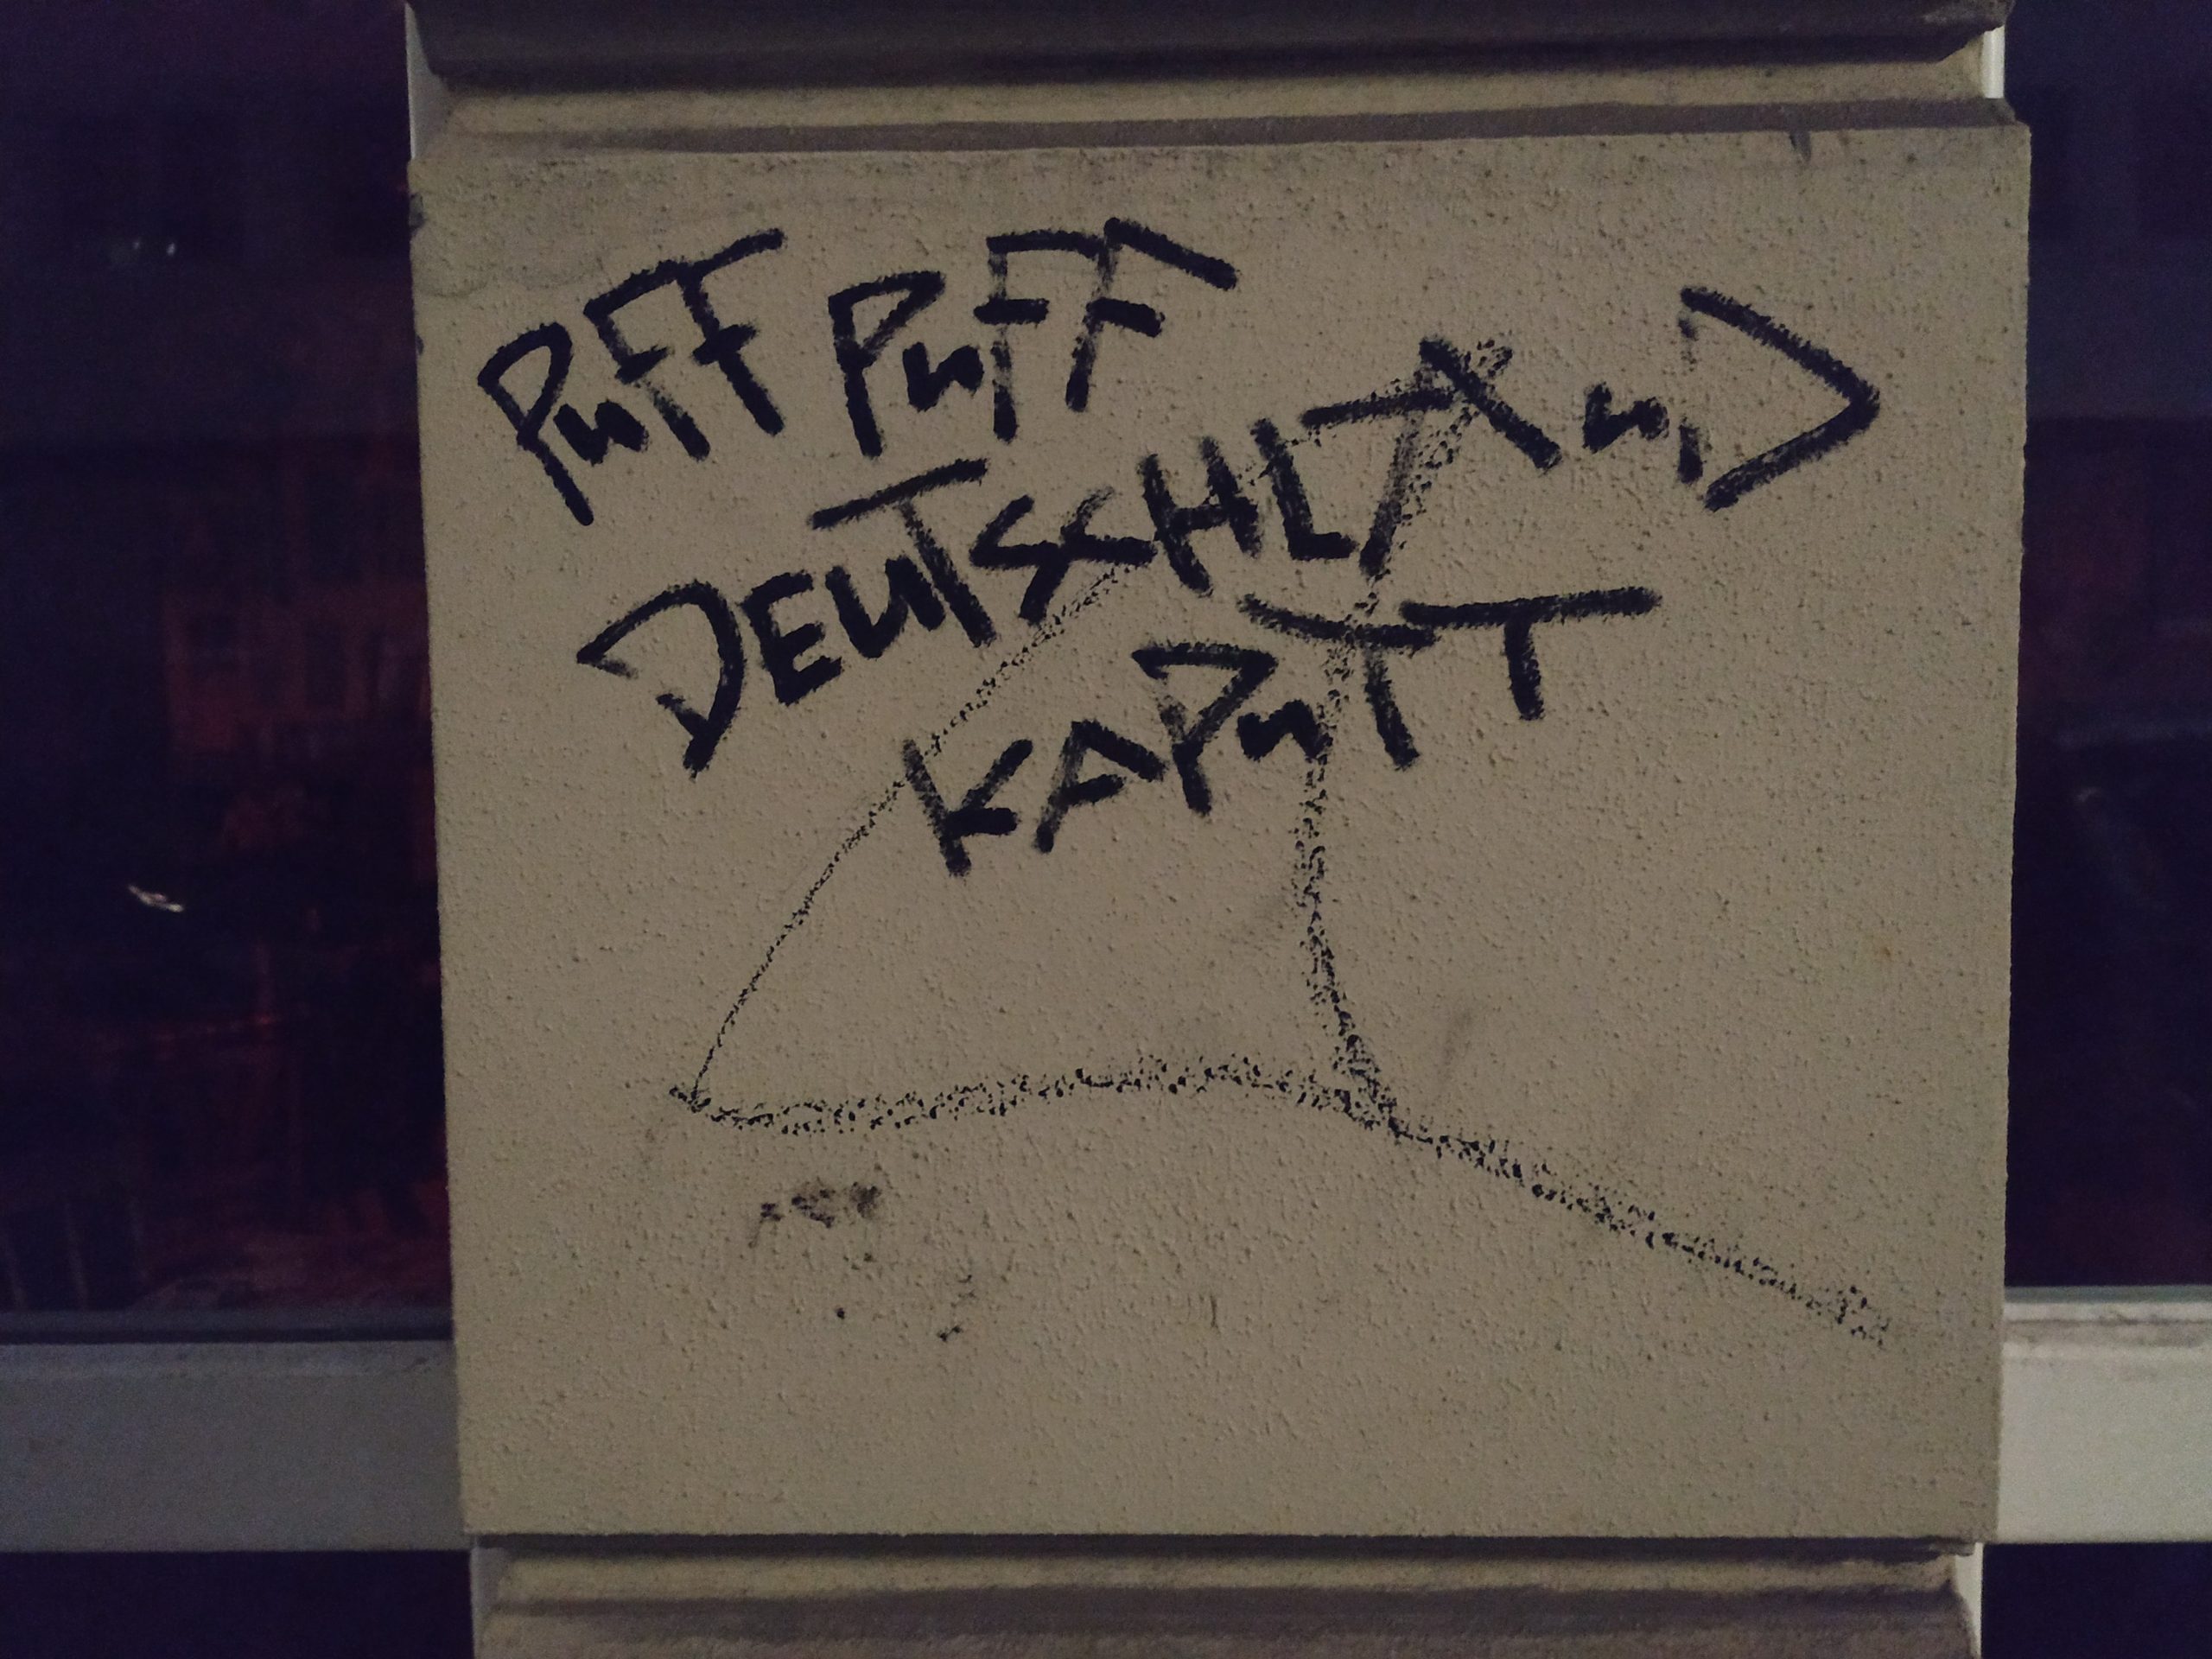 PuFF PuFF
DEuTSCHLAnD
KAPuTT